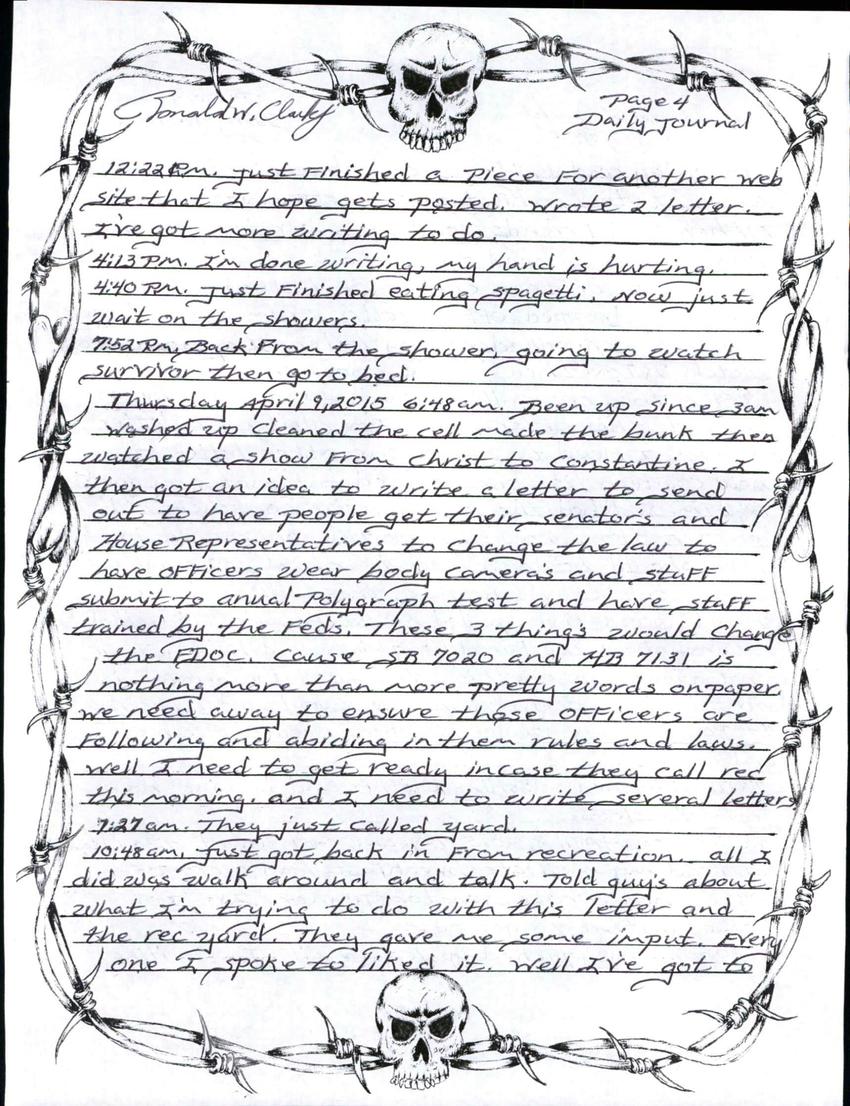 Ronald W. Clark Jr
Page 4
Daily Journal
12:22 P.m. Just Finished a Piece For another web
site that I hope gets posted. Wrote 2 letter.
I've got more writing to do.
4:13 P.m. I'm done writing, my hand is hurting.
4:40 P.m. Just Finished eating spagetti. Now just
wait on the showers.
7:52 P.m. Back From the shower, going to watch
survivor then go to bed.
Thursday April 9, 2015 6:48am. Been up since 3am
washed up cleaned the cell made the bunk then
watched a show From Christ to Constantine. I
then got an idea to write a letter to send
out to have people get their senator's and
House Representatives to change the law to
have OFFicers wear body camera's and staFF
submit to anual Polygraph test and have staFF
trained by the Feds. These 3 things would change
the FDOC. Cause SB 7020 and HB 7131 is
nothing more than more pretty words on paper.
we need away to ensure these OFFicers are
Following and abiding in them rules and laws.
Well I need to get ready incase they call rec
this morning. and I need to write several letters
7:27am. They just called yard.
10:48am, Just got back in From recreation. all I
did was walk around and talk. Told guy's about
what I'm trying to do with this letter and
the rec yard. They gave me some imput. Every
one I spoke to liked it. Well I've got to